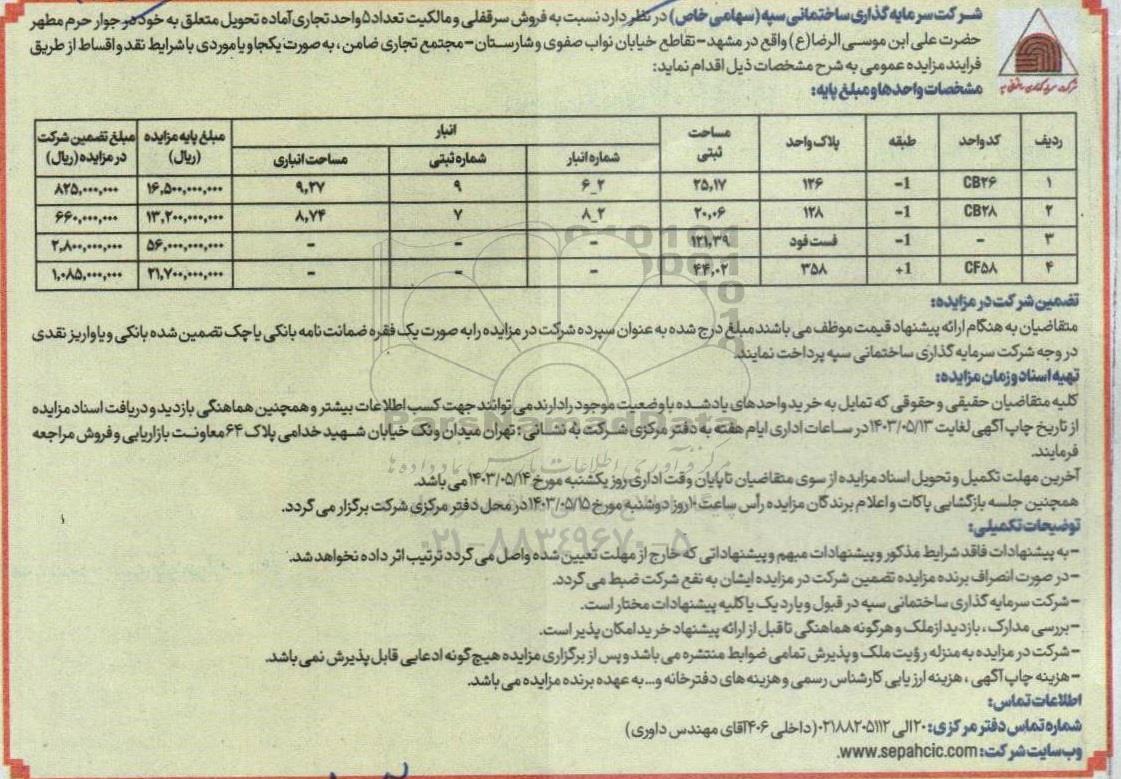 شرکت سرمایه گذاری ساختمانی سپه (سهامی خاص) در نظر دارد نسبت به فروش سرقفلی و مالکیت تعداد ۵ واحد تجاری آماده تحویل متعلق به خود در جوار حرم مطهر
حضرت علی ابن موسی الرضا(ع) واقع در مشهد - تقاطع خیابان نواب صفوی و شارستان - مجتمع تجاری ضامن ، به صورت یکجا و یا موردی با شرایط نقد و اقساط از طریق
فرایند مزایده عمومی به شرح مشخصات ذیل اقدام نماید:
مشخصات واحدها و مبلغ پایه:
ردیف | کد واحد | طبقه | پلاک واحد | مساحت ثبتی | انبار | مبلغ پایه مزایده (ریال) | مبلغ تضمین شرکت در مزایده (ریال)
شماره انبار | شماره ثبتی | مساحت انباری
۱ | CB۲۶ | -1 | ۱۲۶ | ۲۵,۱۷ | ۶_۲ | ۹ | ۹,۲۷ | ۱۶,۵۰۰,۰۰۰,۰۰۰ | ۸۲۵,۰۰۰,۰۰۰
۲ | CB۲۸ | -1 | ۱۲۸ | ۲۰,۰۶ | ۸_۲ | ۷ | ۸,۷۴ | ۱۳,۲۰۰,۰۰۰,۰۰۰ | ۶۶۰,۰۰۰,۰۰۰
۳ | - | -1 | فست فود | ۱۲۱,۳۹ | - | - | - | ۵۶,۰۰۰,۰۰۰,۰۰۰ | ۲,۸۰۰,۰۰۰,۰۰۰
۴ | CF۵۸ | +1 | ۳۵۸ | ۴۴,۰۲ | - | - | - | ۲۱,۷۰۰,۰۰۰,۰۰۰ | ۱,۰۸۵,۰۰۰,۰۰۰
تضمین شرکت در مزایده:
متقاضیان به هنگام ارائه پیشنهاد قیمت موظف می باشند مبلغ درج شده به عنوان سپرده شرکت در مزایده را به صورت یک فقره ضمانت نامه بانکی یا چک تضمین شده بانکی و یا واریز نقدی
در وجه شرکت سرمایه گذاری ساختمانی سپه پرداخت نمایند.
تهیه اسناد و زمان مزایده:
کلیه متقاضیان حقیقی و حقوقی که تمایل به خرید واحدهای یاد شده با وضعیت موجود را دارند می توانند جهت کسب اطلاعات بیشتر و همچنین هماهنگی بازدید و دریافت اسناد مزایده
از تاریخ چاپ آگهی لغایت ۱۴۰۳/۰۵/۱۳ در ساعات اداری ایام هفته به دفتر مرکزی شرکت به نشانی : تهران میدان ونک خیابان شهید خدامی پلاک ۶۴ معاونت بازاریابی و فروش مراجعه
فرمایند.
آخرین مهلت تکمیل و تحویل اسناد مزایده از سوی متقاضیان تا پایان وقت اداری روز یکشنبه مورخ ۱۴۰۳/۰۵/۱۴ می باشد.
همچنین جلسه بازگشایی پاکات و اعلام برندگان مزایده رأس ساعت ۱۰ روز دوشنبه مورخ ۱۴۰۳/۰۵/۱۵ در محل دفتر مرکزی شرکت برگزار می گردد.
توضیحات تکمیلی:
- به پیشنهادات فاقد شرایط مذکور و پیشنهادات مبهم و پیشنهاداتی که خارج از مهلت تعیین شده واصل می گردد ترتیب اثر داده نخواهد شد.
- در صورت انصراف برنده مزایده تضمین شرکت در مزایده ایشان به نفع شرکت ضبط می گردد.
- شرکت سرمایه گذاری ساختمانی سپه در قبول و یا رد یک یا کلیه پیشنهادات مختار است.
- بررسی مدارک ، بازدید از ملک و هرگونه هماهنگی تا قبل از ارائه پیشنهاد خرید امکان پذیر است.
- شرکت در مزایده به منزله رؤیت ملک و پذیرش تمامی ضوابط منتشره می باشد و پس از برگزاری مزایده هیچ گونه ادعایی قابل پذیرش نمی باشد.
- هزینه چاپ آگهی ، هزینه ارزیابی کارشناس رسمی و هزینه های دفترخانه و... به عهده برنده مزایده می باشد.
اطلاعات تماس:
شماره تماس دفتر مرکزی: ۲۰ الی ۰۲۱۸۸۲۰۵۱۱۲ (داخلی ۴۰۶ آقای مهندس داوری)
وب سایت شرکت: www.sepahcic.com.
ParsNamadData
مرکز فرآوری اطلاعات پارس نماد داده ها
۰۲۱-۸۸۳۴۹۶۷۰-۵